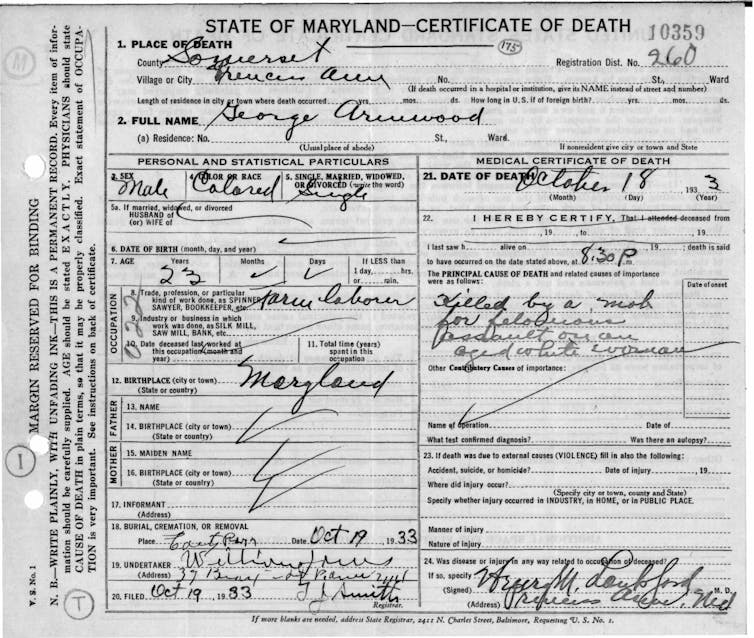 STATE OF MARYLAND—CERTIFICATE OF DEATH
10359
1. PLACE OF DEATH
175
County Somerset
Registration Dist. No. 260
Village or City Princess Anne No. St., Ward
(If death occurred in a hospital or institution, give its NAME instead of street and number)
Length of residence in city or town where death occurred yrs. mos. ds. How long in U.S. if of foreign birth? yrs. mos. ds.
2. FULL NAME George Armwood
(a) Residence: No. St., Ward.
(Usual place of abode) If nonresident give city or town and State
PERSONAL AND STATISTICAL PARTICULARS
3. SEX
Male
4. COLOR OR RACE
Colored
5. SINGLE, MARRIED, WIDOWED,
OR DIVORCED (write the word)
Single
5a. If married, widowed, or divorced
HUSBAND of
(or) WIFE of
6. DATE OF BIRTH (month, day, and year)
7. AGE Years Months Days If LESS than
1 day, hrs.
or min.
23
OCCUPATION
8. Trade, profession, or particular
kind of work done, as SPINNER,
SAWYER, BOOKKEEPER, etc. Farm laborer
9. Industry or business in which
work was done, as SILK MILL,
SAW MILL, BANK, etc.
10. Date deceased last worked at
this occupation (month and
year)
11. Total time (years)
spent in this
occupation
12. BIRTHPLACE (city or town) Maryland
(State or country)
FATHER
13. NAME
14. BIRTHPLACE (city or town)
(State or country)
MOTHER
15. MAIDEN NAME
16. BIRTHPLACE (city or town)
(State or country)
17. INFORMANT
(Address)
18. BURIAL, CREMATION, OR REMOVAL
Place Date Oct 19, 1933
19. UNDERTAKER William Jones
(Address)
20. FILED Oct 19, 1933 Smith
Registrar.
MEDICAL CERTIFICATE OF DEATH
21. DATE OF DEATH October 18 1933
(Month) (Day) (Year)
22. I HEREBY CERTIFY, That I attended deceased from
, 19 , to , 19
I last saw h alive on , 19 ; death is said
to have occurred on the date stated above, at 8:30 P m.
The PRINCIPAL CAUSE OF DEATH and related causes of importance
were as follows:
Date of onset
Killed by a mob
for felonious
assault on an
aged white woman
Other Contributory Causes of importance:
Name of operation Date of
What test confirmed diagnosis? Was there an autopsy?
23. If death was due to external causes (VIOLENCE) fill in also the following:
Accident, suicide, or homicide? Date of injury , 19
Where did injury occur?
(Specify city or town, county and State)
Specify whether injury occurred in INDUSTRY, in HOME, or in PUBLIC PLACE.
Manner of injury
Nature of injury
24. Was disease or injury in any way related to occupation of deceased?
If so, specify
(Signed) Henry M. Lankford M. D.
(Address) Princess Anne, Md
If more blanks are needed, address State Registrar, 2411 N. Charles Street, Baltimore, Requesting U. S. No. 1.
V. S. No. 1
MARGIN RESERVED FOR BINDING
N. B.—WRITE PLAINLY, WITH UNFADING INK—THIS IS A PERMANENT RECORD. Every item of infor-
mation should be carefully supplied. AGE should be stated EXACTLY. PHYSICIANS should state
CAUSE OF DEATH in plain terms, so that it may be properly classified. Exact statement of OCCUPA-
TION is very important. See instructions on back of certificate.
M
I
T